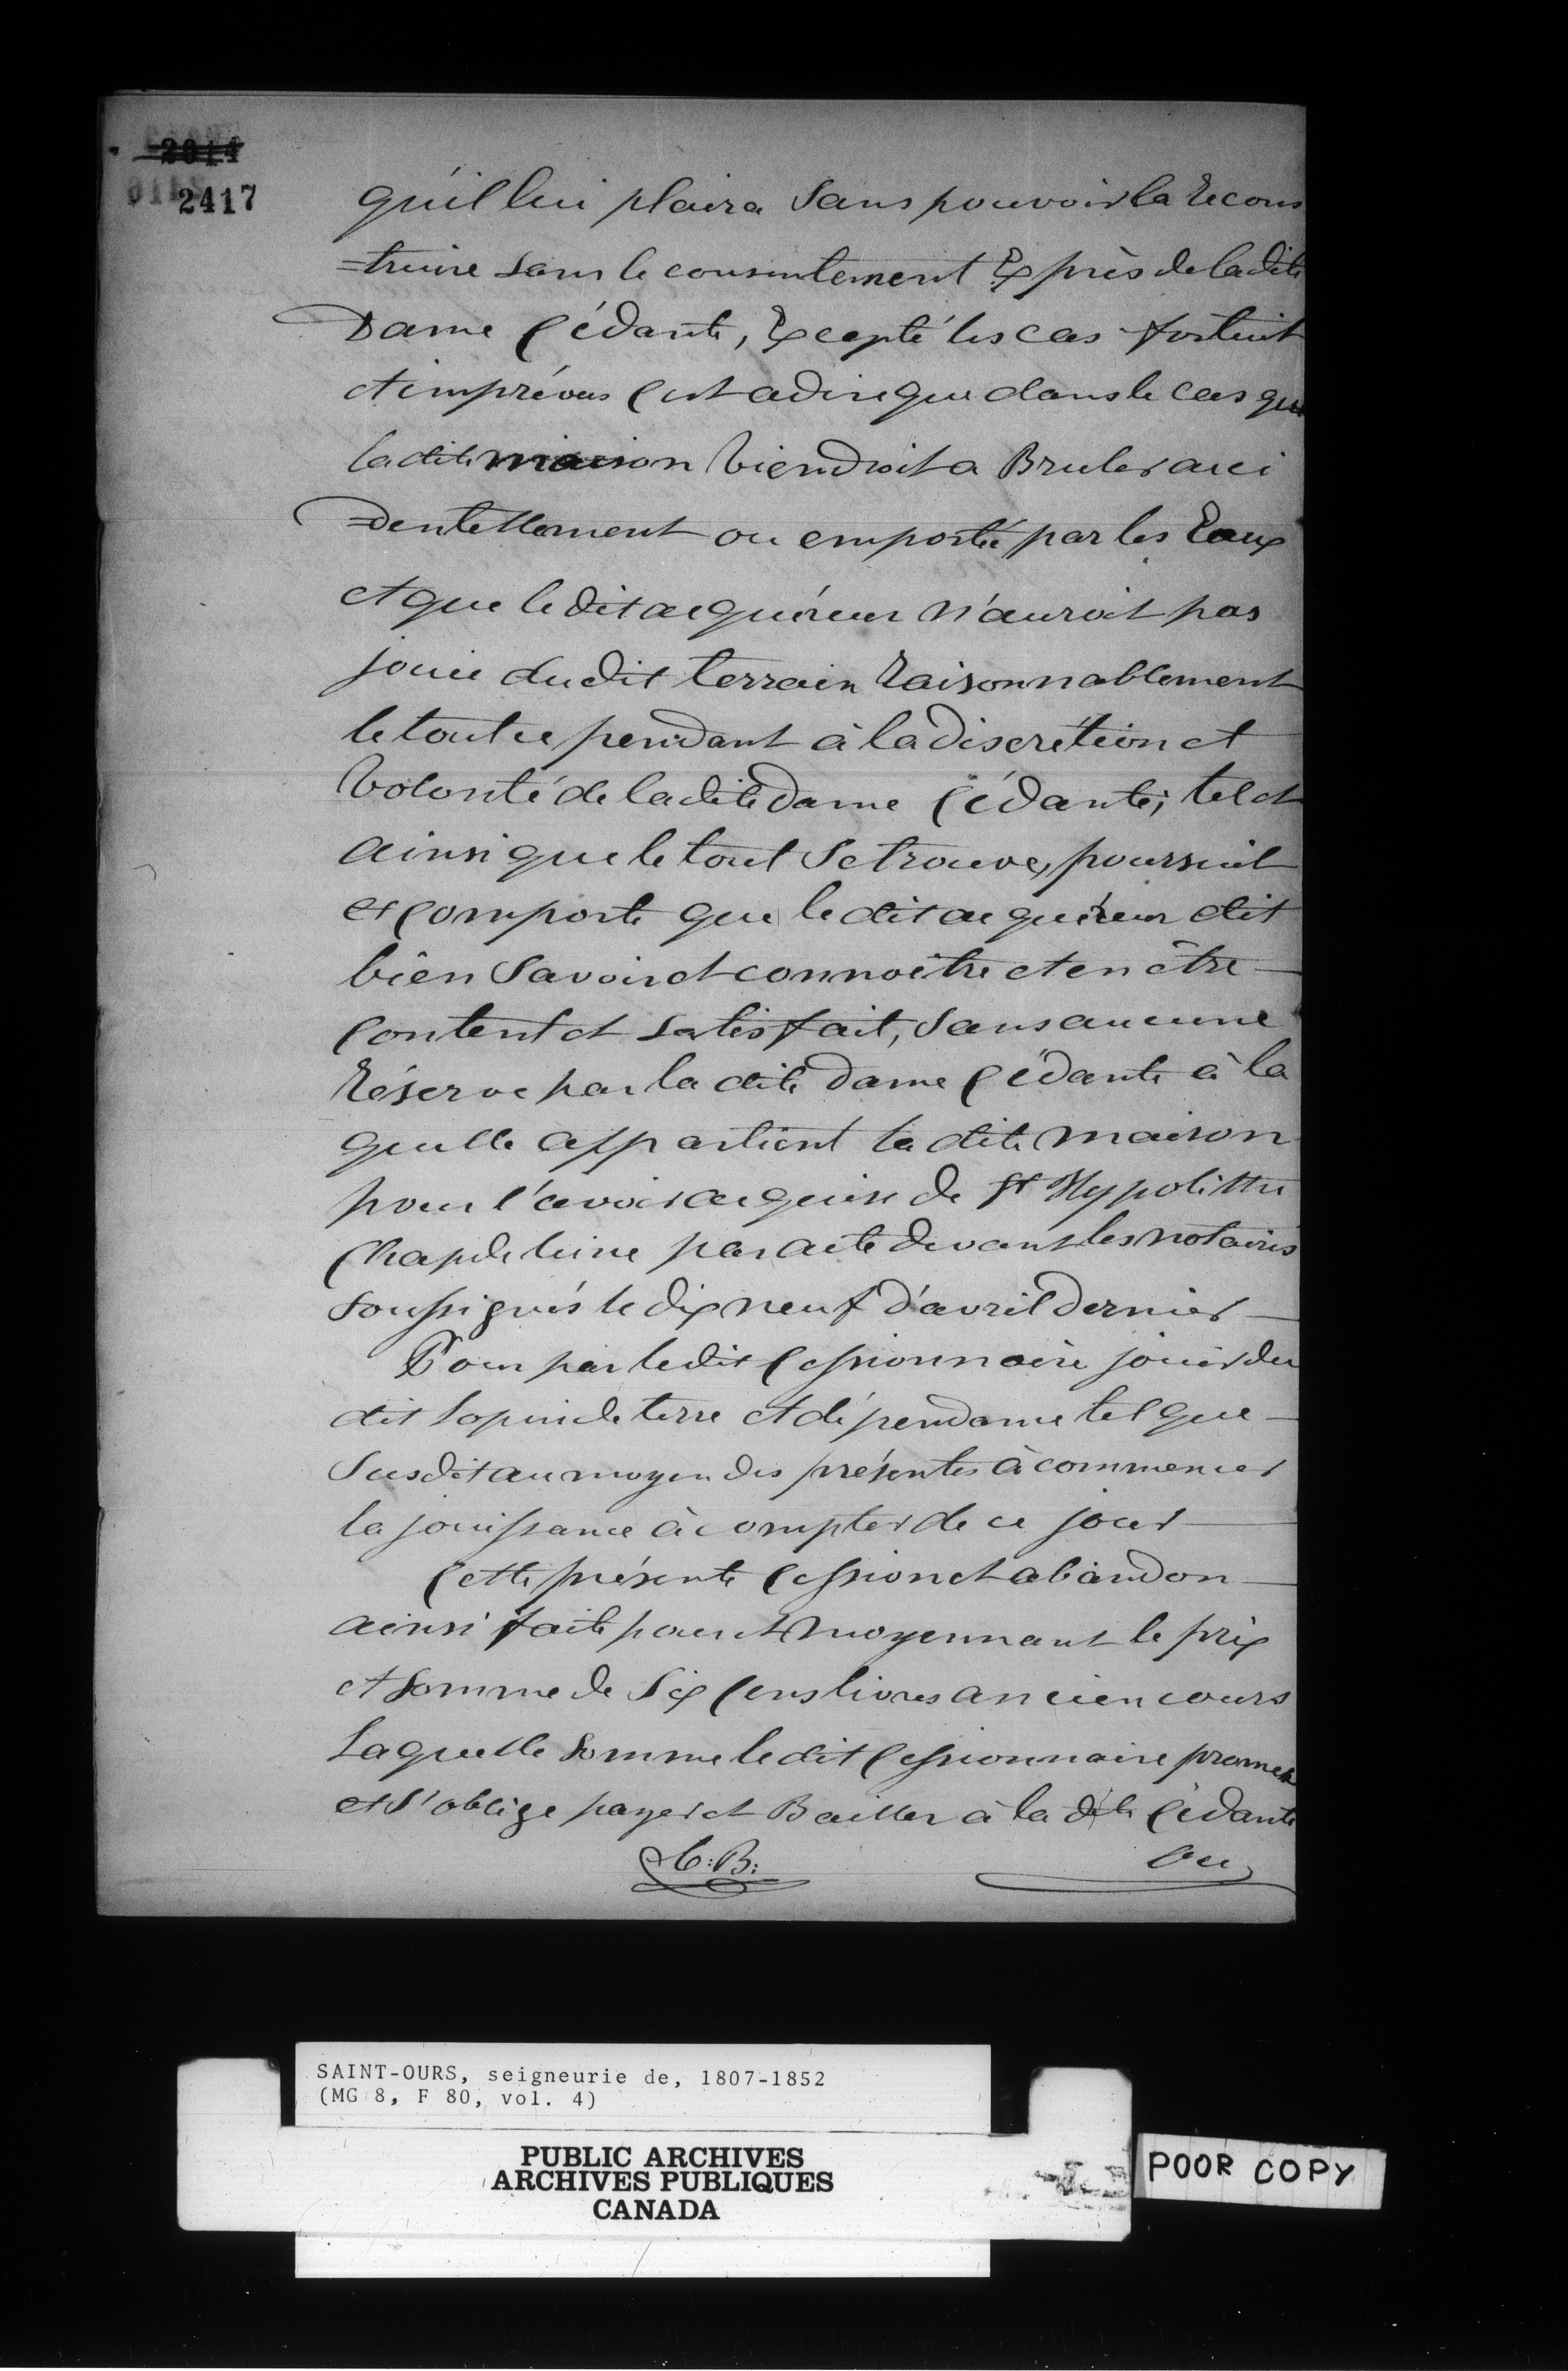 2014
2417
qu'il lui plaira Sans pouvoir la recons
=truire sans le consentement Exprès de la dite
Dame Cédante, Excepté les cas fortuit
et imprévus C'est a dire que dans le cas que
la dite maison viendroit a Bruler acci
=dentellement ou emporté par les Eaux
et que le dit acquéreur n'auroit pas
jouie du dit terrain Raisonnablement
le tout cependant à la Discrétion et
Volonté de la dite Dame Cédante; tel et
ainsi que le tout Se trouve, poursuit
et Comporte que le dit acquéreur dit
bien Savoir et connoître et en être
Content et satisfait, Sans aucune
Réserve par la dite Dame Cédante à la
quelle appartient la dite maison
pour l'avoir acquise de Sr Hypolitte
Chapdeleine par acte devant les notaires
soussignés le dix neuf d'avril Dernier
Pour par le dit Cessionnaire jouir du
dit Lopin de terre et dépendance tel que
Susdit au moyen des présentes à commencer
la jouissance à compter de ce jour
Cette présente Cession et abandon
ainsi faite pour et moyennant le prix
et Somme de Six Cens livres ancien cours
Laquelle Somme le dit Cessionnaire promet
et S'oblige payer et Bailler à la dite Cédante
C:B:
Ou
SAINT-OURS, seigneurie de, 1807-1852
(MG 8, F 80, vol. 4)
PUBLIC ARCHIVES
ARCHIVES PUBLIQUES
CANADA
POOR COPY